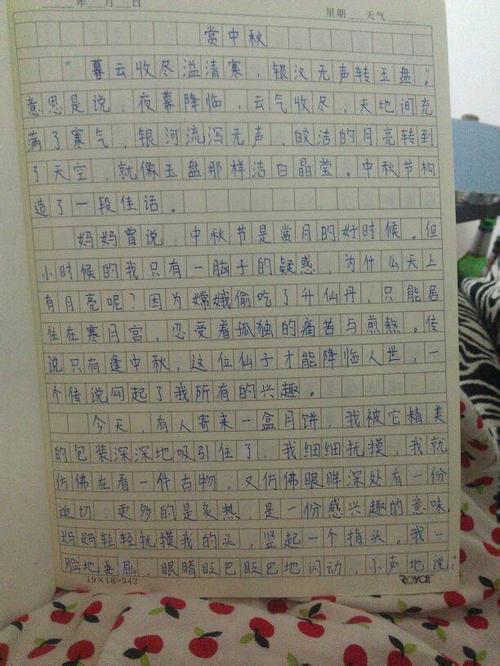 年 月 日
星期 天气
赏中秋
“暮云收尽溢清寒，银汉无声转玉盘。”
意思是说，夜幕降临，云气收尽，天地间充
满了寒气，银河流泻无声，皎洁的月亮转到
了天空，就像玉盘那样洁白晶莹。中秋节构
造了一段佳话。
妈妈曾说，中秋节是赏月的好时候。但
小时候的我只有一脑子的疑惑，为什么天上
有月亮呢？因为嫦娥偷吃了升仙丹，只能居
住在寒月宫，忍受着孤独的痛苦与煎熬。传
说只有逢中秋，这位仙子才能降临人世，一
个传说勾起了我所有的兴趣。
今天，有人寄来一盒月饼，我被它精美
的包装深深地吸引住了，我细细抚摸，我就
仿佛在看一件古物，又仿佛眼眸深处有一份
迫切，更多的是炙热，是一份感兴趣的意味。
妈妈轻轻抚摸我的头，竖起一个指头。我一
脸地委屈，眼睛眨巴眨巴地闪动，小声地说：
19×18=342
ROYAL